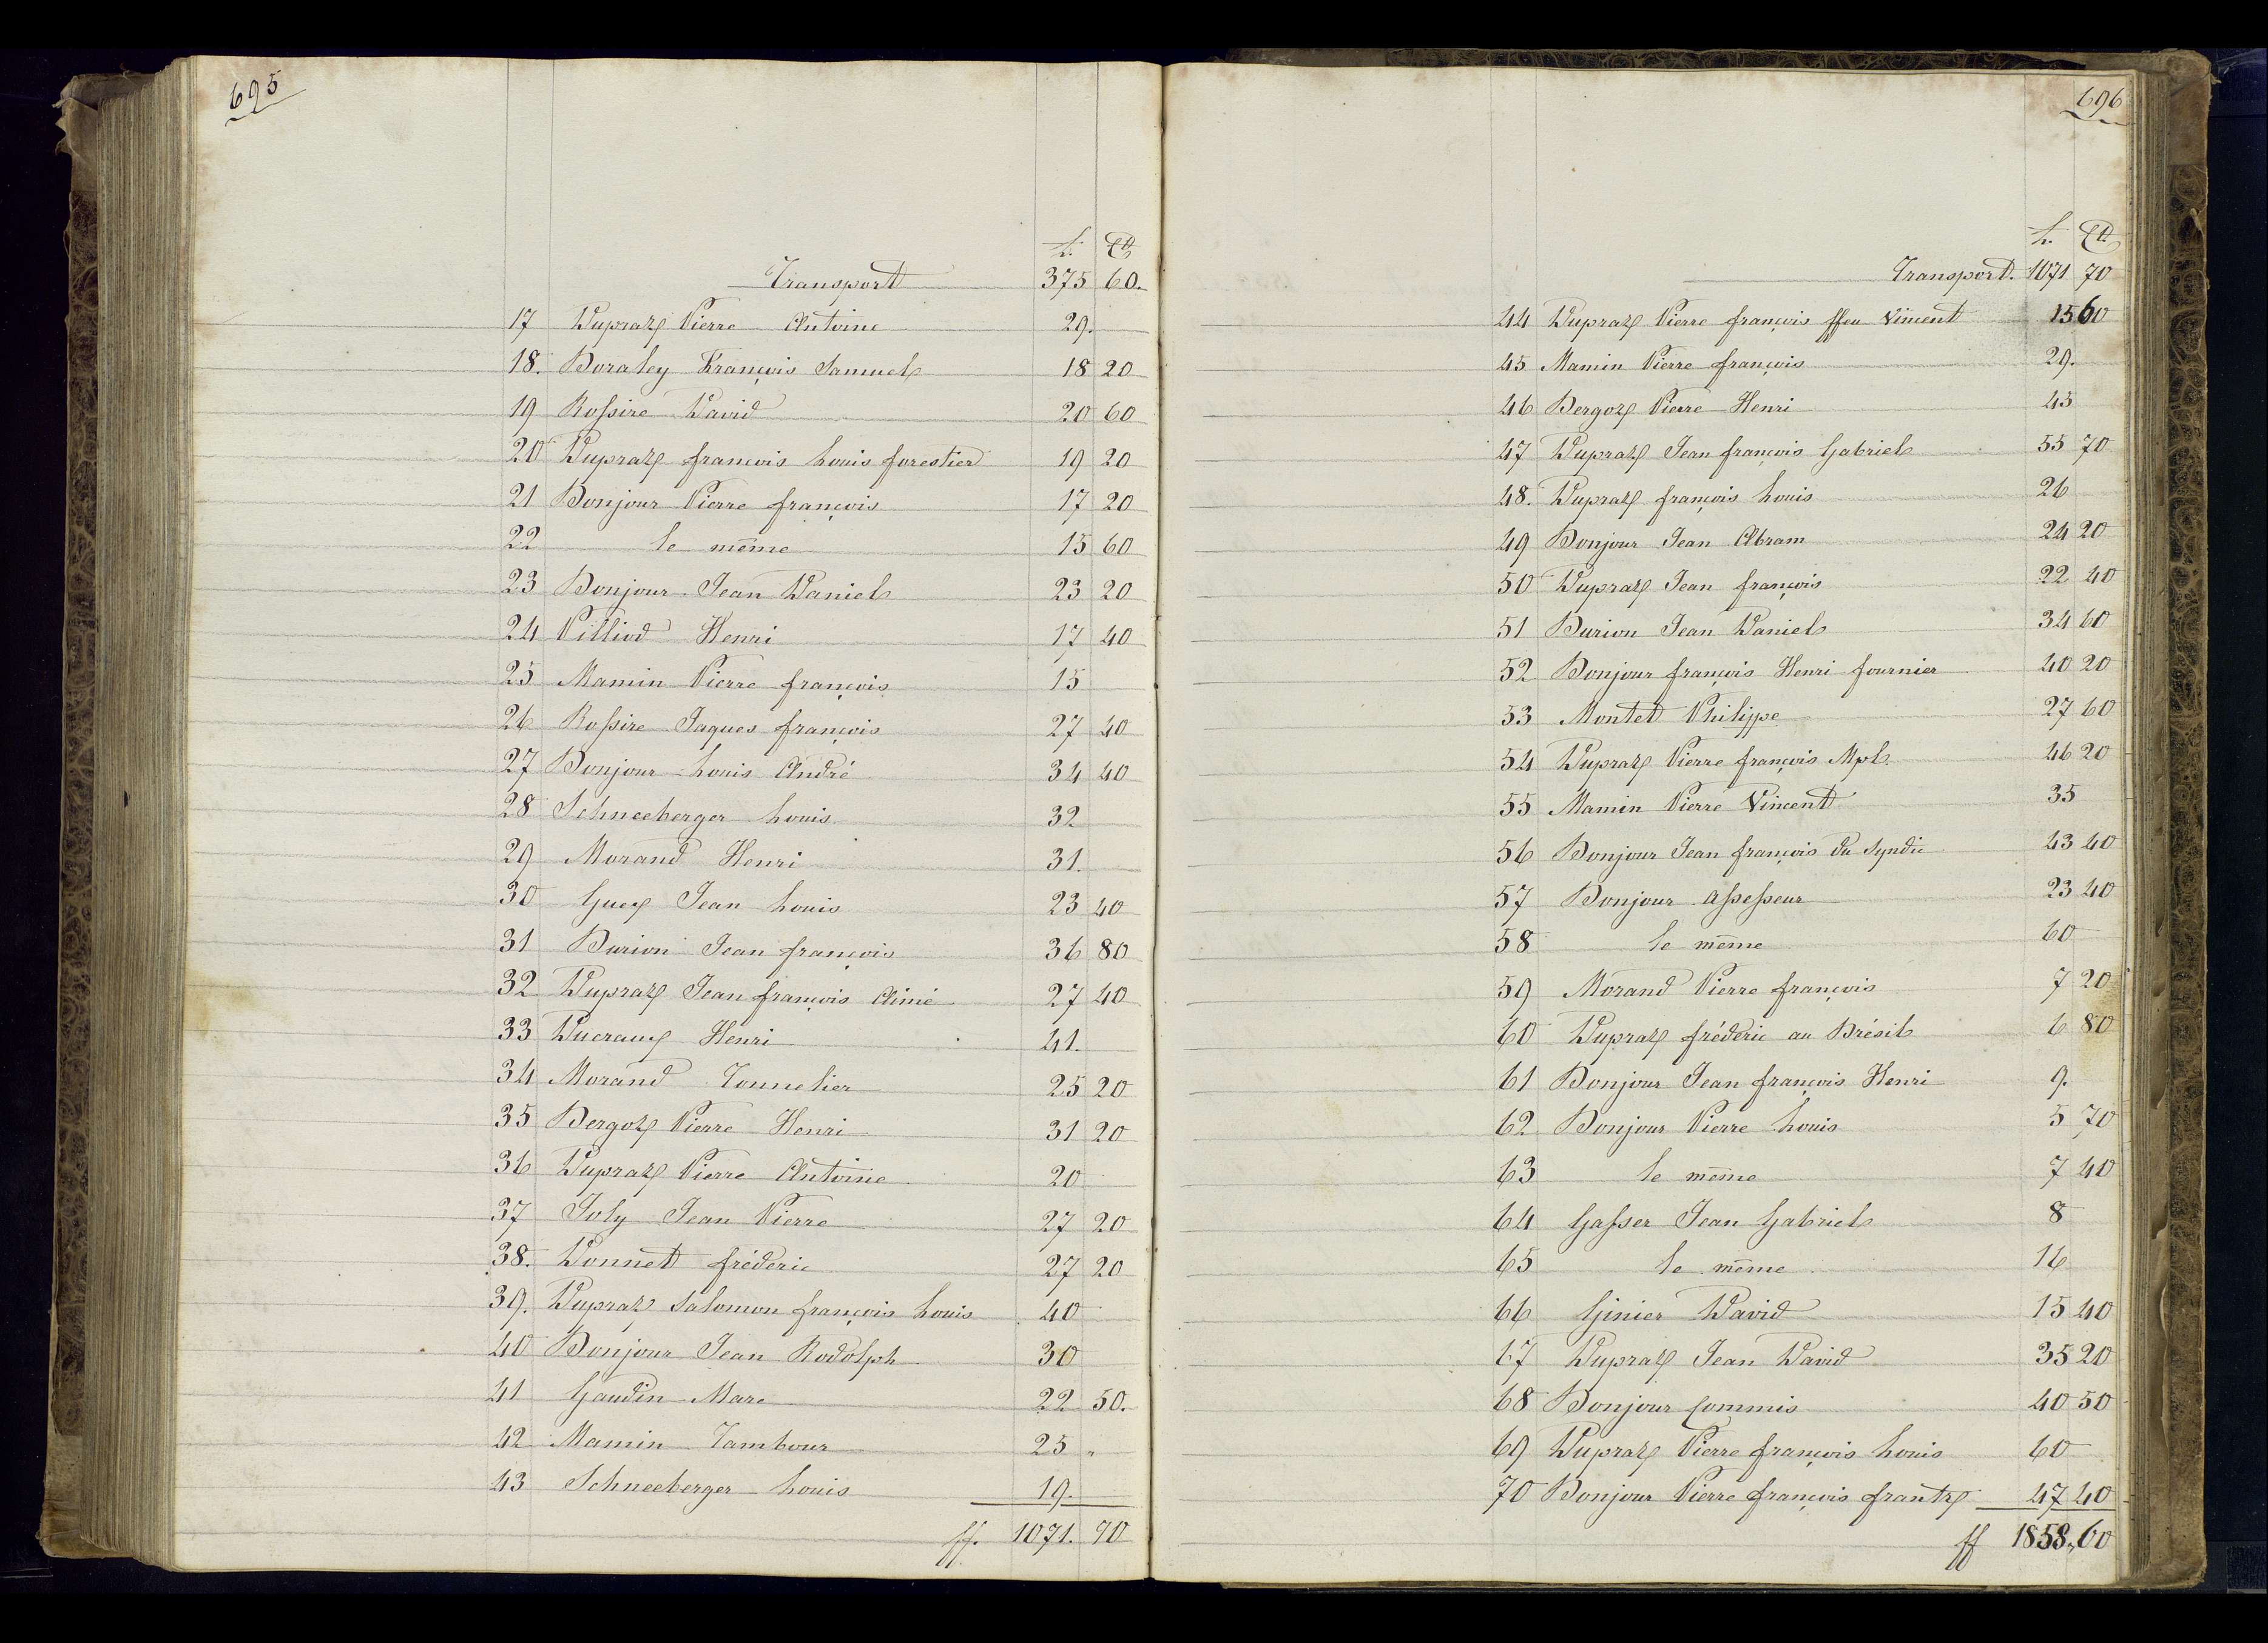 695
f. Ct
Transport 375 60.
17 Dupraz Pierre Antoine 29.
18. Doraley François Samuel 18 20
19 Rossire David 20 60
20 Dupraz francois Louis forestier 19 20
21 Bonjour Pierre françois 17 20
22 le même 15 60
23 Bonjour Jean Daniel 23 20
24 Villiod Henri 17 40
25 Mamin Pierre françois 15
26 Rossire Jaques françois 27 40
27 Bonjour Louis André 34 40
28 Schneeberger Louis 32
29 Morand Henri 31.
30 Guex Jean Louis 23 40
31 Burion Jean françois 36 80
32 Dupraz Jean françois Aimé 27 40
33 Ducraux Henri 41.
34 Morand Tonnelier 25 20
35 Bergoz Pierre Henri 31 20
36 Dupraz Pierre Antoine 20
37 Joly Jean Pierre 27 20
38. Donnet fréderic 27 20
39. Dupraz Salomon françois Louis 40
40 Bonjour Jean Rodolph 30
41 Gaudin Marc 22 50.
42 Mamin Tambour 25 "
43 Schneeberger Louis 19.
ff. 1071. 70
696
f. Ct.
Transport. 1071 70
44 Dupraz Pierre françois ffeu Vincent 15 60
45 Mamin Pierre françois 29.
46 Bergoz Pierre Henri 45
47 Dupraz Jean françois Gabriel 55 70
48. Dupraz françois Louis 26
49 Bonjour Jean Abram 24 20
50 Dupraz Jean françois 22 40
51 Burion Jean Daniel 34 60
52 Bonjour françois Henri fournier 40 20
53 Montet Philippe 27 60
54 Dupraz Pierre françois Mpl. 46 20
55 Mamin Pierre Vincent 35
56 Bonjour Jean françois du Syndic 43 40
57 Bonjour assesseur 23 40
58 le même 60
59 Morand Pierre françois 7 20
60 Dupraz fréderic au Brésil 6 80
61 Bonjour Jean françois Henri 9.
62 Bonjour Pierre Louis 5 70
63 le même 7 40
64 Gasser Jean Gabriel 8
65 le même 16
66 Ginier David 15 40
67 Dupraz Jean David 35 20
68 Bonjour Commis 40 50
69 Dupraz Pierre françois Louis 60
70 Bonjour Pierre françois frantz 47 40
ff 1858,,60